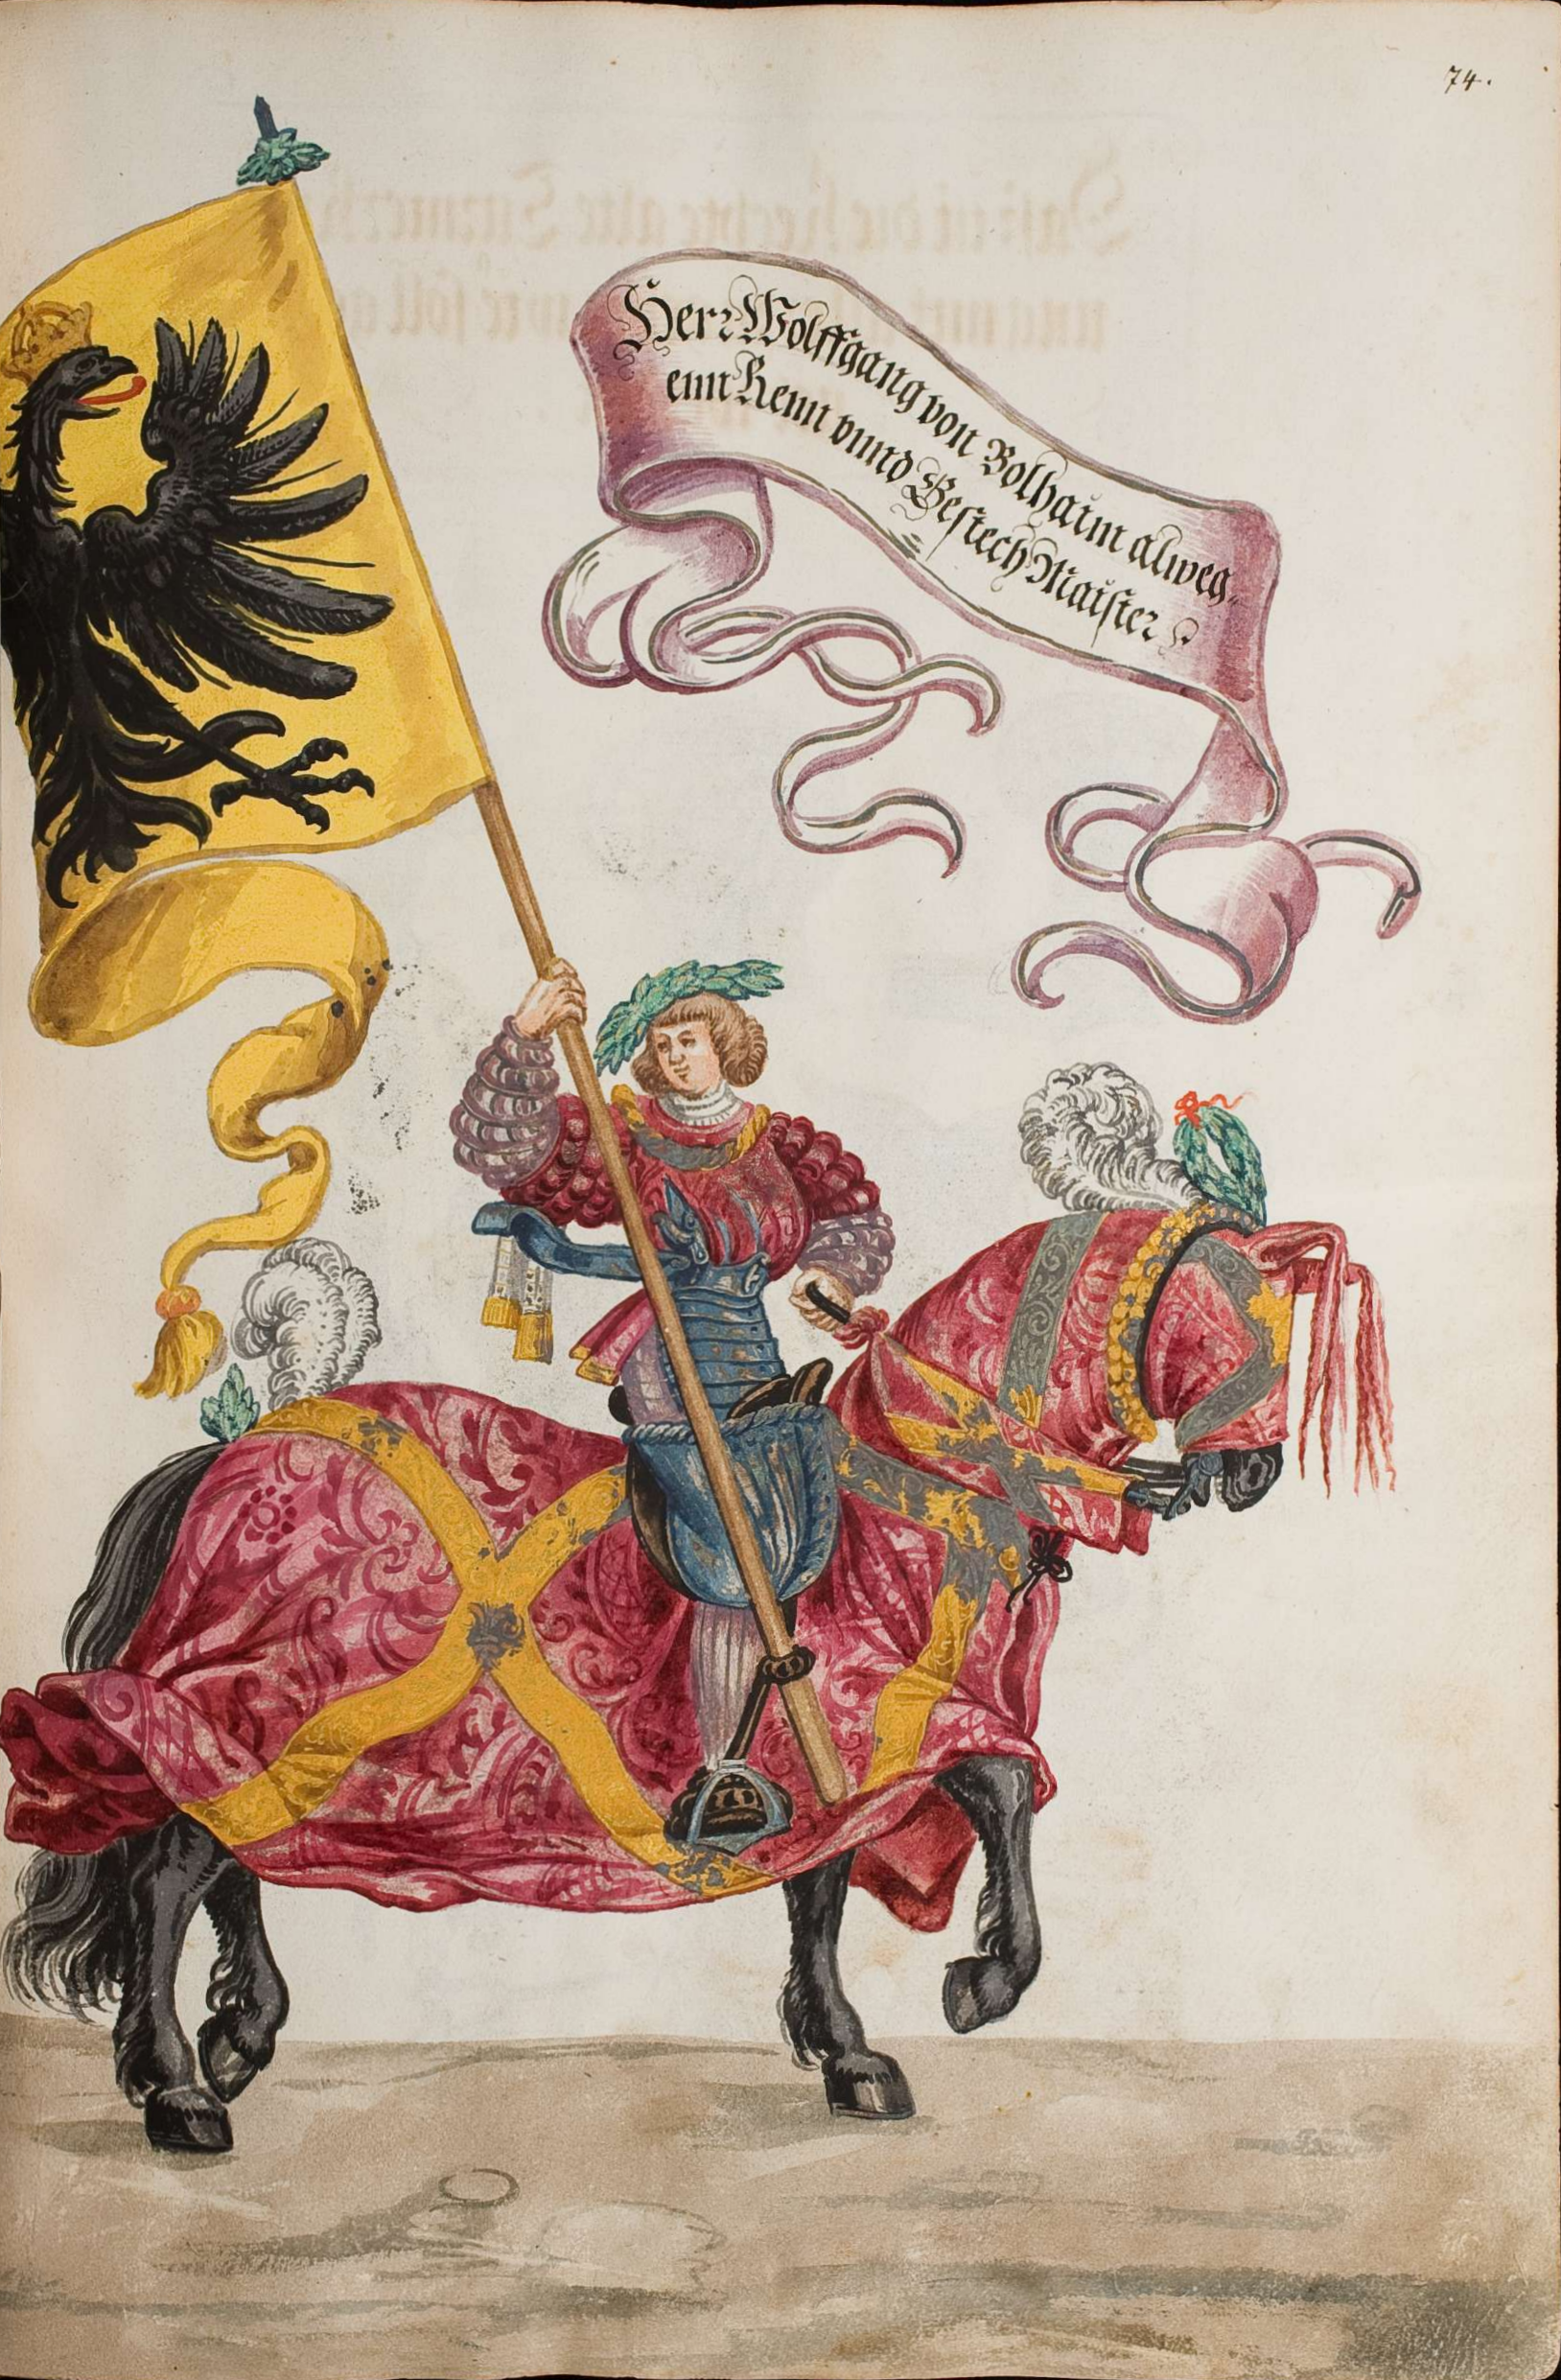 74.
Herr Wolffgang von Bolhaim alweg
ein Renn vnnd Gestech Maister